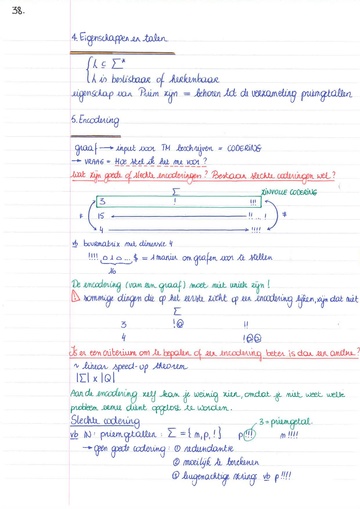 38.
4. Eigenschappen en talen
{ L ⊆ Σ*
L is beslisbaar of herkenbaar
eigenschap van Priem zijn = behoren tot de verzameling priemgetallen
5. Encodering
graaf → input voor TM beschrijven = CODERING
→ VRAAG = Hoe stel ik het me voor?
Wat zijn goede of slechte encoderingen? Bestaan slechte coderingen wel?
Σ ZINVOLLE CODERING
3 ! !!!
F 15 !! ... !
4 !!!!
vb bovenmatrix met dimensie 4
!!!! 010... $ = 1 manier om grafen voor te stellen
16
De encodering (van een graaf) moet niet uniek zijn!
sommige dingen die op het eerste zicht op een encodering lijken, zijn dat niet
Σ
3 !@ !!
4 !@@
Is er een criterium om te bepalen of een encodering beter is dan een andere?
~ linear speed-up theorem
|Σ| x |Q|
Aan de encodering zelf kan je weinig zien, omdat je niet weet welk
probleem ermee dient opgelost te worden.
Slechte codering 3 = priemgetal
vb N: priemgetallen: Σ = {m, p, !} p!!! m!!!!
→ geen goede codering: ① redundantie
② moeilijk te berekenen
③ leugenachtige strings vb p!!!!